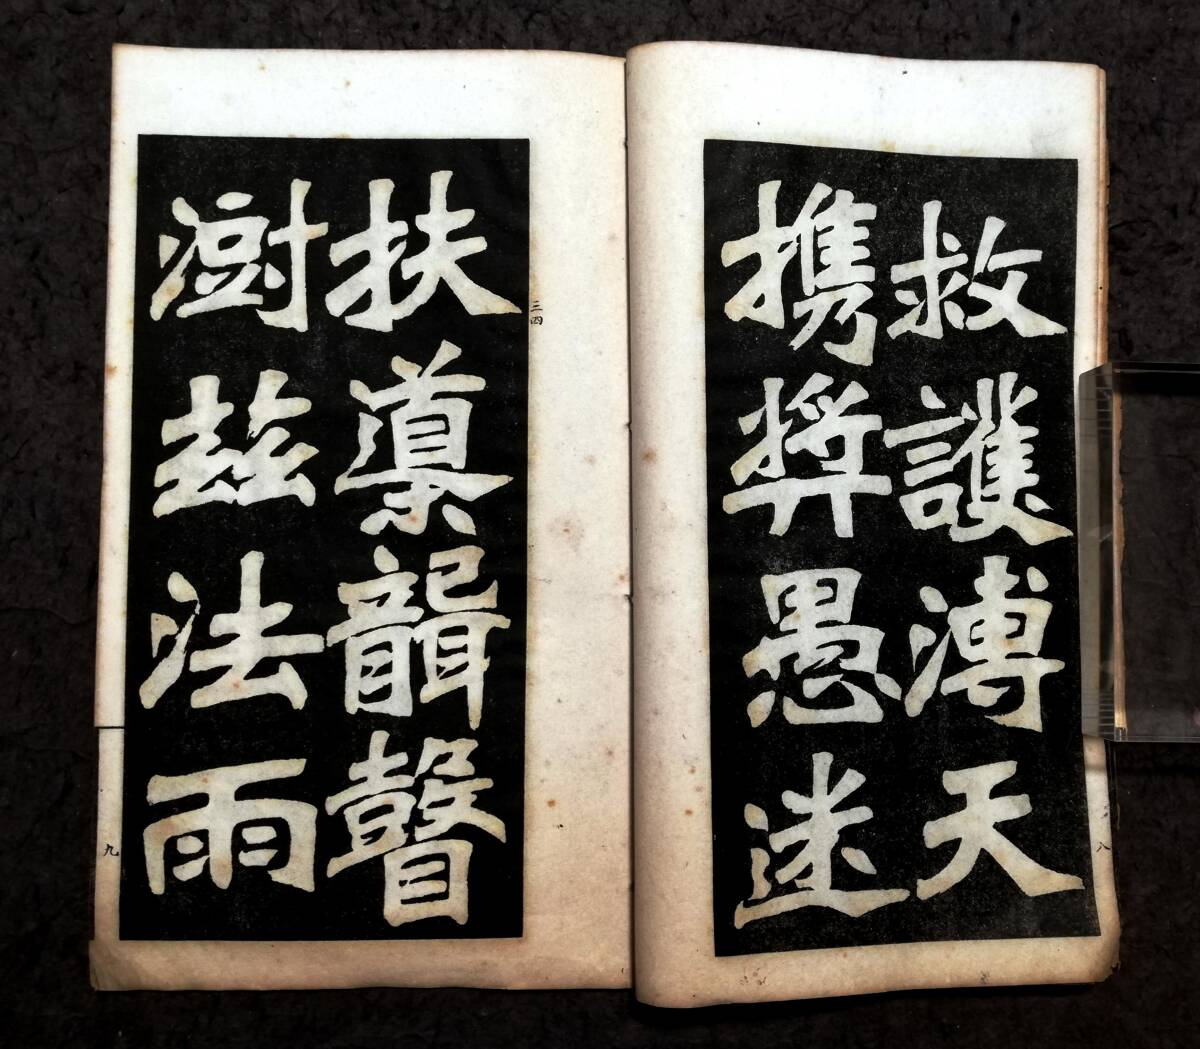 救護溥天
携獎愚迷
扶導聾瞽
澍茲法雨
三四
八
九